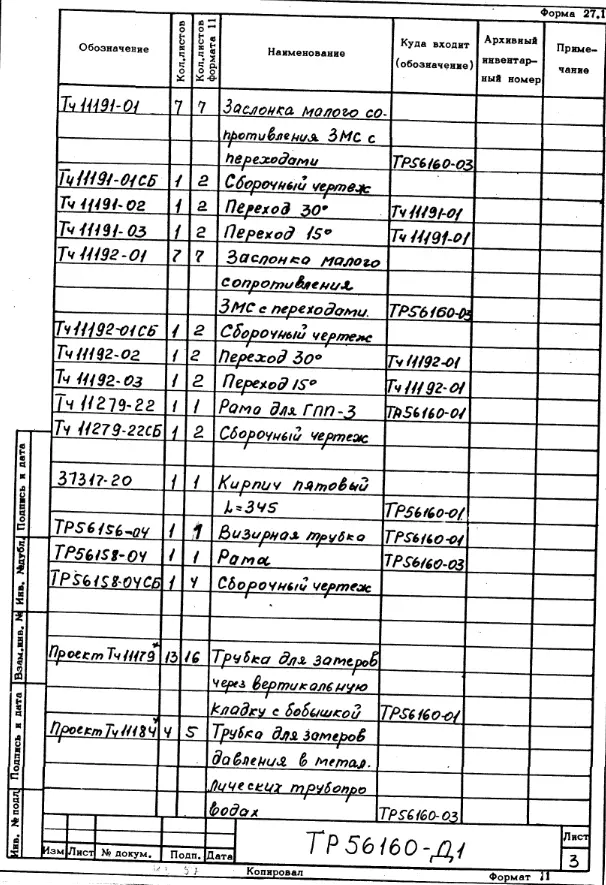 Форма 27.1
Обозначение Кол.листов Кол.листов формата 11 Наименование Куда входит (обозначение) Архивный инвентар-ный номер Приме-чание
Тч 11191-01 7 7 Заслонка малого со-
противления ЗМС с
переходами ТР56160-03
Тч 11191-01СБ 1 2 Сборочный чертеж
Тч 11191-02 1 2 Переход 30° Тч 11191-01
Тч 11191-03 1 2 Переход 15° Тч 11191-01
Тч 11192-01 7 7 Заслонка малого
сопротивления
ЗМС с переходами. ТР56160-03
Тч 11192-01СБ 1 2 Сборочный чертеж
Тч 11192-02 1 2 Переход 30° Тч 11192-01
Тч 11192-03 1 2 Переход 15° Тч 11192-01
Тч 11279-22 1 1 Рама для ГПП-3 ТР56160-01
Тч 11279-22СБ 1 2 Сборочный чертеж
37317-20 1 1 Кирпич пятовый
L=345 ТР56160-01
ТР56156-04 1 1 Визирная трубка ТР56160-01
ТР56158-04 1 1 Рама ТР56160-03
ТР56158-04СБ 1 4 Сборочный чертеж
Проект Тч 11179* 13 16 Трубка для замеров
через вертикальную
кладку с бобышкой ТР56160-01
Проект Тч 11184* 4 5 Трубка для замеров
давления в метал.
лических трубопро
водах ТР56160-03
Инв. № подл. Подпись и дата Взам.инв. № Инв. №дубл. Подпись и дата
Изм Лист № докум. Подп. Дата
ТР56160-Д1
Лист
3
Копировал Формат 11